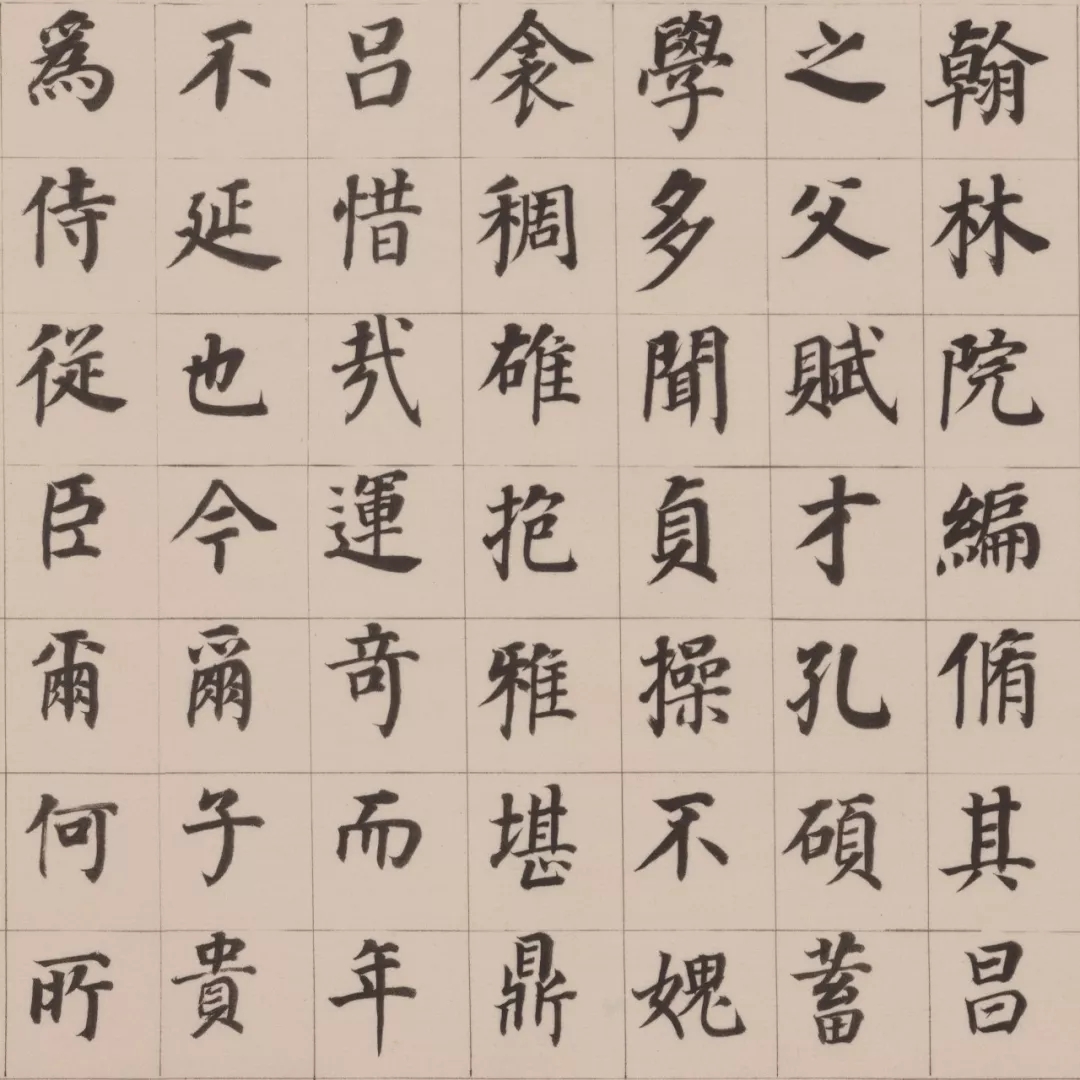 翰林院編脩其昌
之父賦才孔碩蓄
學多聞貞操不媿
衾稠雄抱雅堪鼎
呂惜哉運奇而年
不延也今爾子貴
為侍從臣爾何所